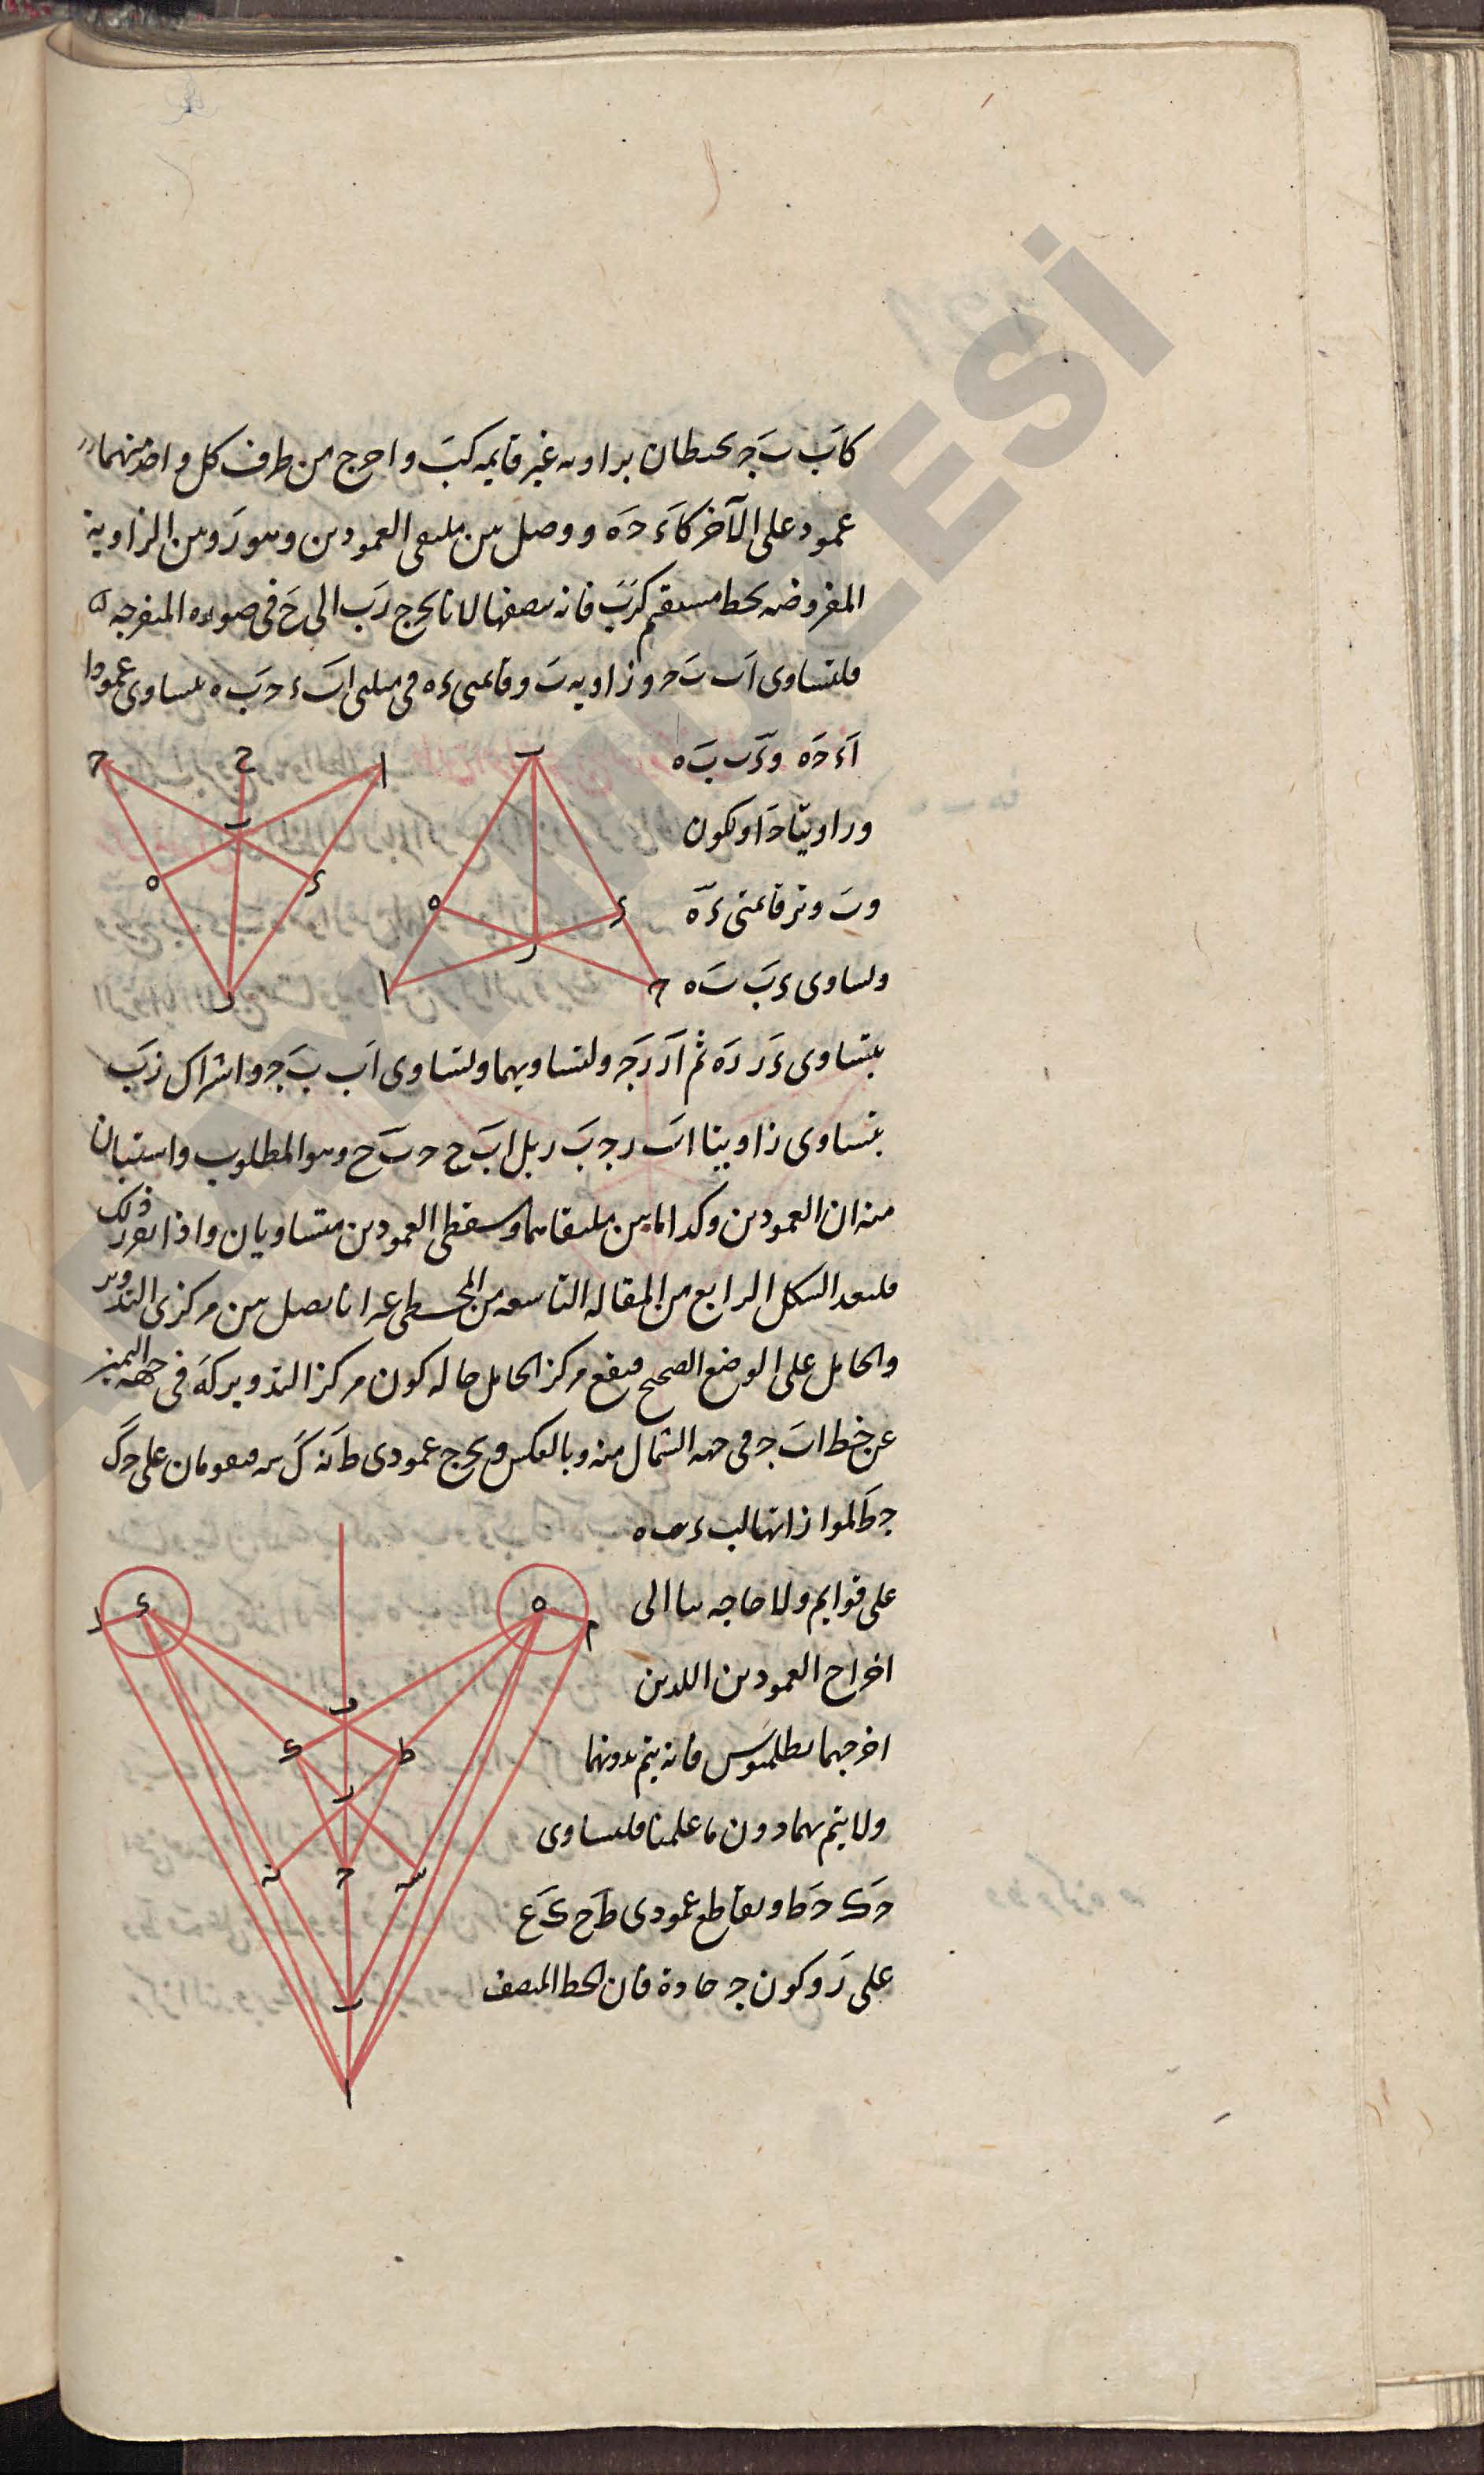 كاَب بَ جـ يحيطان بزاويه غير قايمه كبَ واخرج من طرف كل واحد منهما
عمود على الآخر كاَء حَه ووصل بين ملتقى العمودين وهو رَ وبين الزاوية
المفروضه بخط مستقيم كرَبَ فانه ينصفها لانا نخرج رَب الى حَ فى صوره المنفرجه
فلتساوى اَب بَ حـ وزاويه بَ وقائمتى ءه فى مثلثى ابَ ء حـ بَ ه يتساوى عمودا
اَء حَه وءَب بَ ه
وزاويتا حَ ا ولكون
ربَ وتر قائمتى ءَه
وتساوى ءبَ بَ ه
يتساوى ءَر رَه ثم اَر رَجـ ولتساويهما ولتساوى اَب بَ جـ واشتراك رَبَ
يتساوى زاويتا ابَ ر جـ بَ ر بل ابَ ح حـ بَ ح وهو المطلوب واستبان
منه ان العمودين وكذا ما بين ملتقاهما ومسقطى العمودين متساويان واذا تقرر ذلك
فلنعد الشكل الرابع من المقاله التاسعه من المجسطى على انا نصل بين مركزى التدوير
والحامل على الوضع الصحيح فيقع مركز الحامل حاله كون مركز التدوير كهَ فى جهه اليمين
عن خط ابَ جـ فى جهه الشمال منه وبالعكس ونخرج عمودى طَ نه كَ سه فيقومان على حـ كَ
جـ طَ لموازاتهما لب ء ب ه
على قوايم ولا حاجه بنا الى
اخراج العمودين اللذين
اخرجهما بطلميوس فانه يتم بدونهما
ولا يتم بهما دون ما علمنا فلتساوى
حَ ك حَ ط وتقاطع عمودى طَ ح كَ ع
على رَ وكون جـ حادة فان الخط المنصف
ح
ح
ا
ب
ه
ء
ر
ب
ه
ء
ر
ا
ح
ر
ء
ه
م
ك
ط
ر
نه
ح
سه
ب
ا